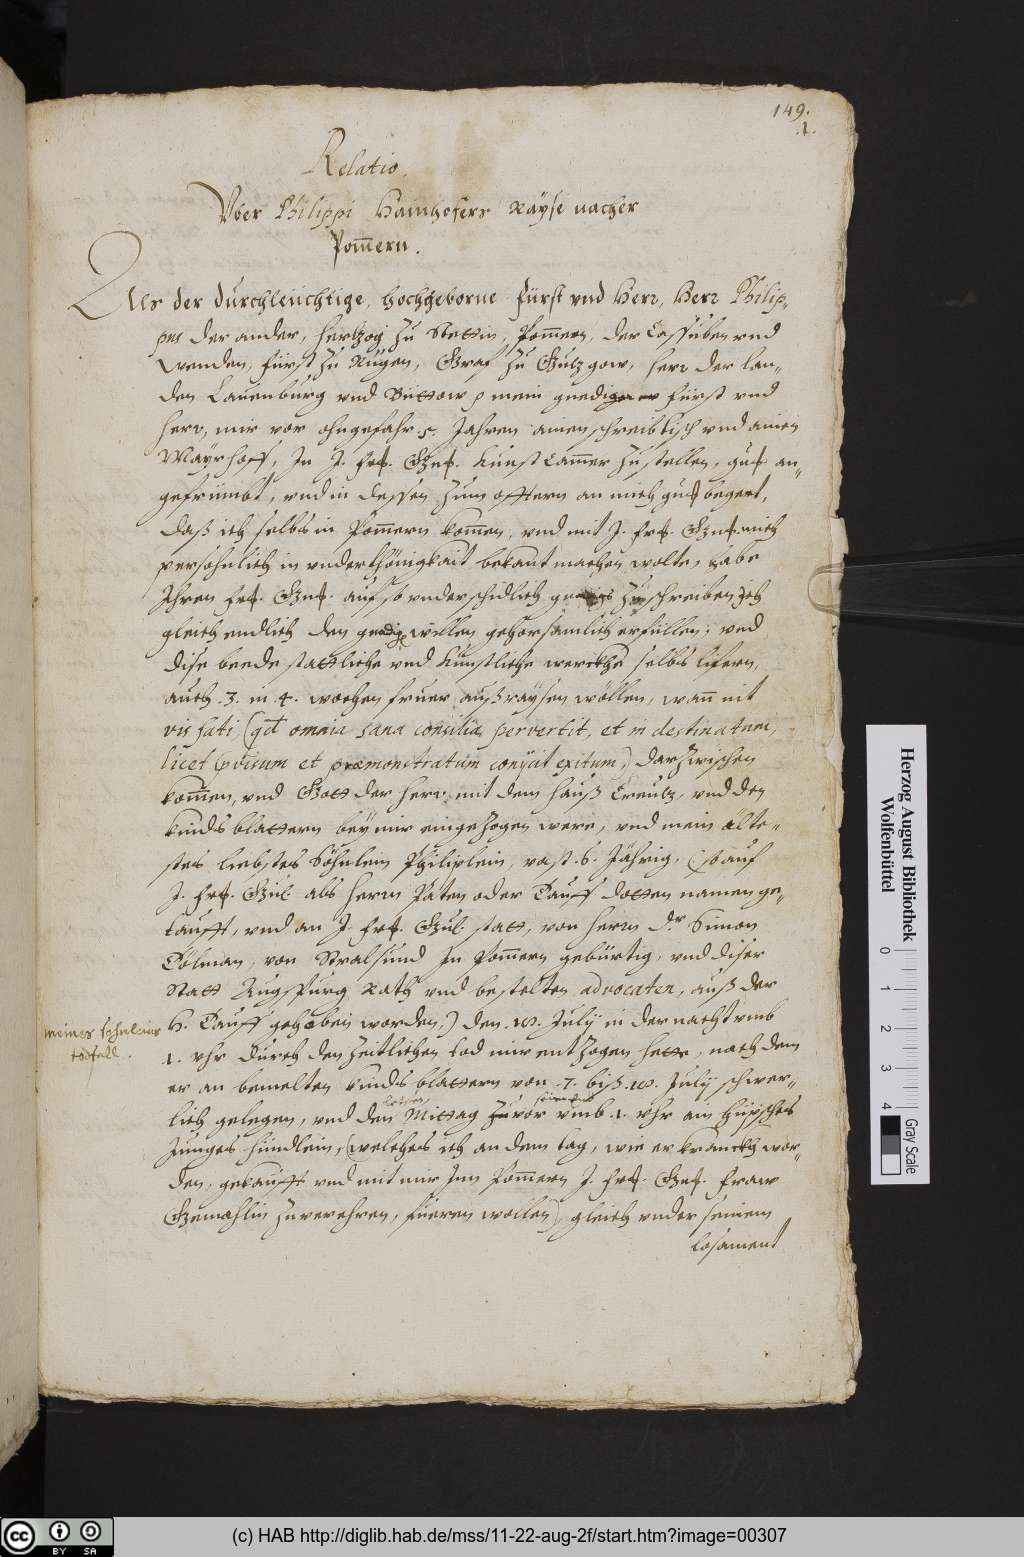 149.
1.
Relatio.
Vber Philippi Hainhofers Rayse nacher
Pom̃ern.
Als der durchleüchtige, hochgeborne Fürst vnd Herr, Herr Philip-
pus der ander, hertzog zu Stettin, Pom̃ern, der Cassuben vnd
Wenden, fürst zu Rügen, Graf zu Gutzgow, herr der lan-
den Lauenburg vnd Büttow p mein gnediger fürst vnd
herr, mir vor ohngefahr .5. Jahren ainen schreibtisch vnd ainen
Mayrhoff, In J. frl. Gn. Kunst Cam̃er zu stellen, an-
gefrümbt, vnd in dessen zum offtern an mich begert,
daß ich selbs in Pom̃ern kom̃en, vnd mit J. frl. Gn. mich
persohnlich in vnderthönigkait bekant machen wolte, habe
Ihren frl. Gn. auf so vnderschidlich zuschreiben ich
gleich endlich den gnedig willen gehorsamlich erfüllen, vnd
dise beede stattliche vnd kunstliche werckhe selbs lifern,
auch .3. in .4. wochen fruer außraysen wöllen, wañ nit
vis fati, (qd omnia sana consilia pervertit, et in destinatum,
licet prævisum et præmonstratum conÿcit exitum,) darzwischen
kom̃en, vnd Gott der herr mit dem hauß Creutz, vnd den
kinds blattern beÿ mir eingezogen were, vnd mein ölte-
stes liebstes Söhnlein Philiplein, vast .6. Jährig, (so auf
J. frl. Gn. als herrn Paten oder Tauff dotten namen ge-
taufft, vnd an J. frl. Gn. statt, von herrn dr. Simon
Tölman, von Stralsund In Pom̃ern gebürtig, vnd diser
Statt Augspurg Rath vnd bestelten advocaten, auß der
H. Tauff gehoben worden,) den .18. Julÿ in der nacht vmb
meines sohnleins
todfall.
1. vhr durch den zeitlichen tod mir entzogen hette, nach dem
er an bemelten kinds blattern von .7. biß .18. Julÿ schwer-
lich gelegen, vnd den letsten Mittag zuvor vmb .1. vhr ain hüpsches
Junges hündlein, (welches ich an dem tag, wie er kranckh wor-
den, gekaufft vnd mit mir Inn Pom̃ern J. frl. Gn. fraw
Gemahlin zuverehren, füeren wollen) gleich vnder seinem
losament
Herzog August Bibliothek
Wolfenbüttel
0 1 2 3 4
Gray Scale
cc BY SA
(c) HAB http://diglib.hab.de/mss/11-22-aug-2f/start.htm?image=00307